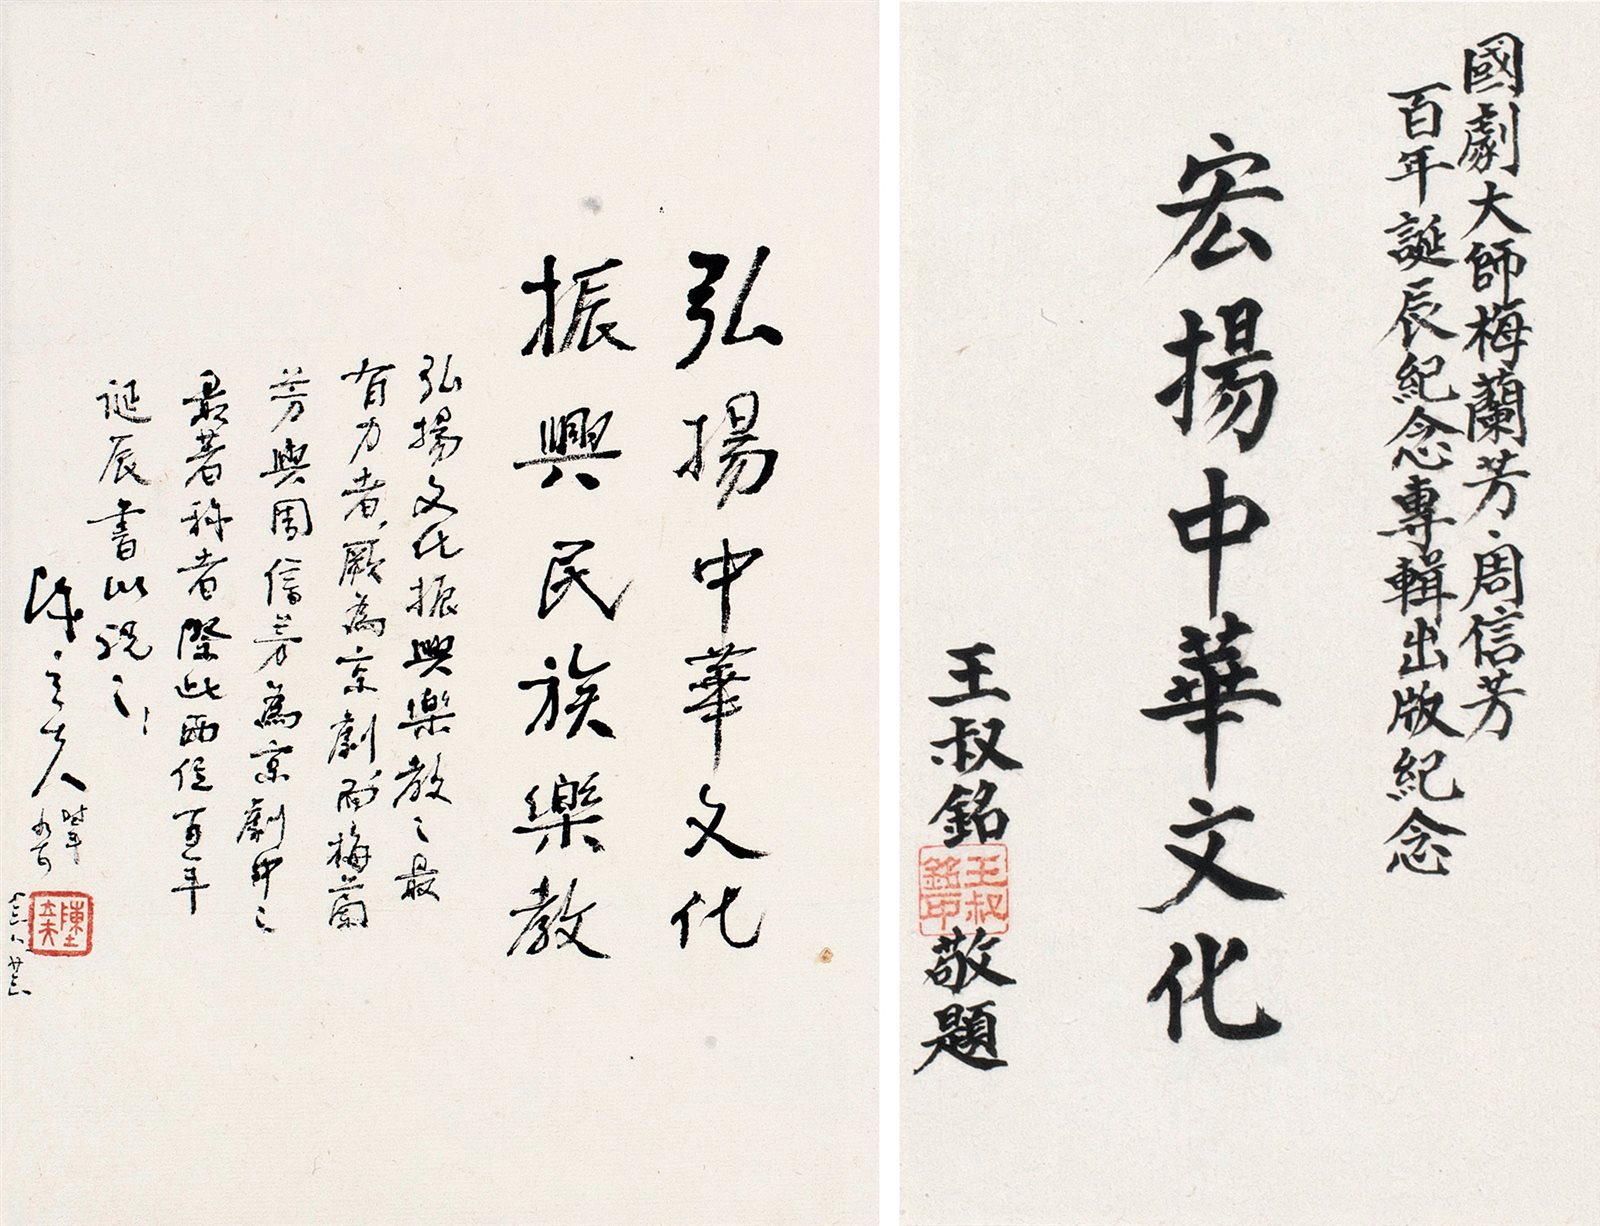 國劇大師梅蘭芳·周信芳
百年誕辰紀念專輯出版紀念
宏揚中華文化
王叔銘敬題
王叔銘印
弘揚中華文化
振興民族樂教
弘揚文化振興樂教之最
有力者厥為京劇而梅蘭
芳與周信芳為京劇中之
最著稱者際此兩位百年
誕辰書以祝之
陳立夫
時年九十
陳立夫